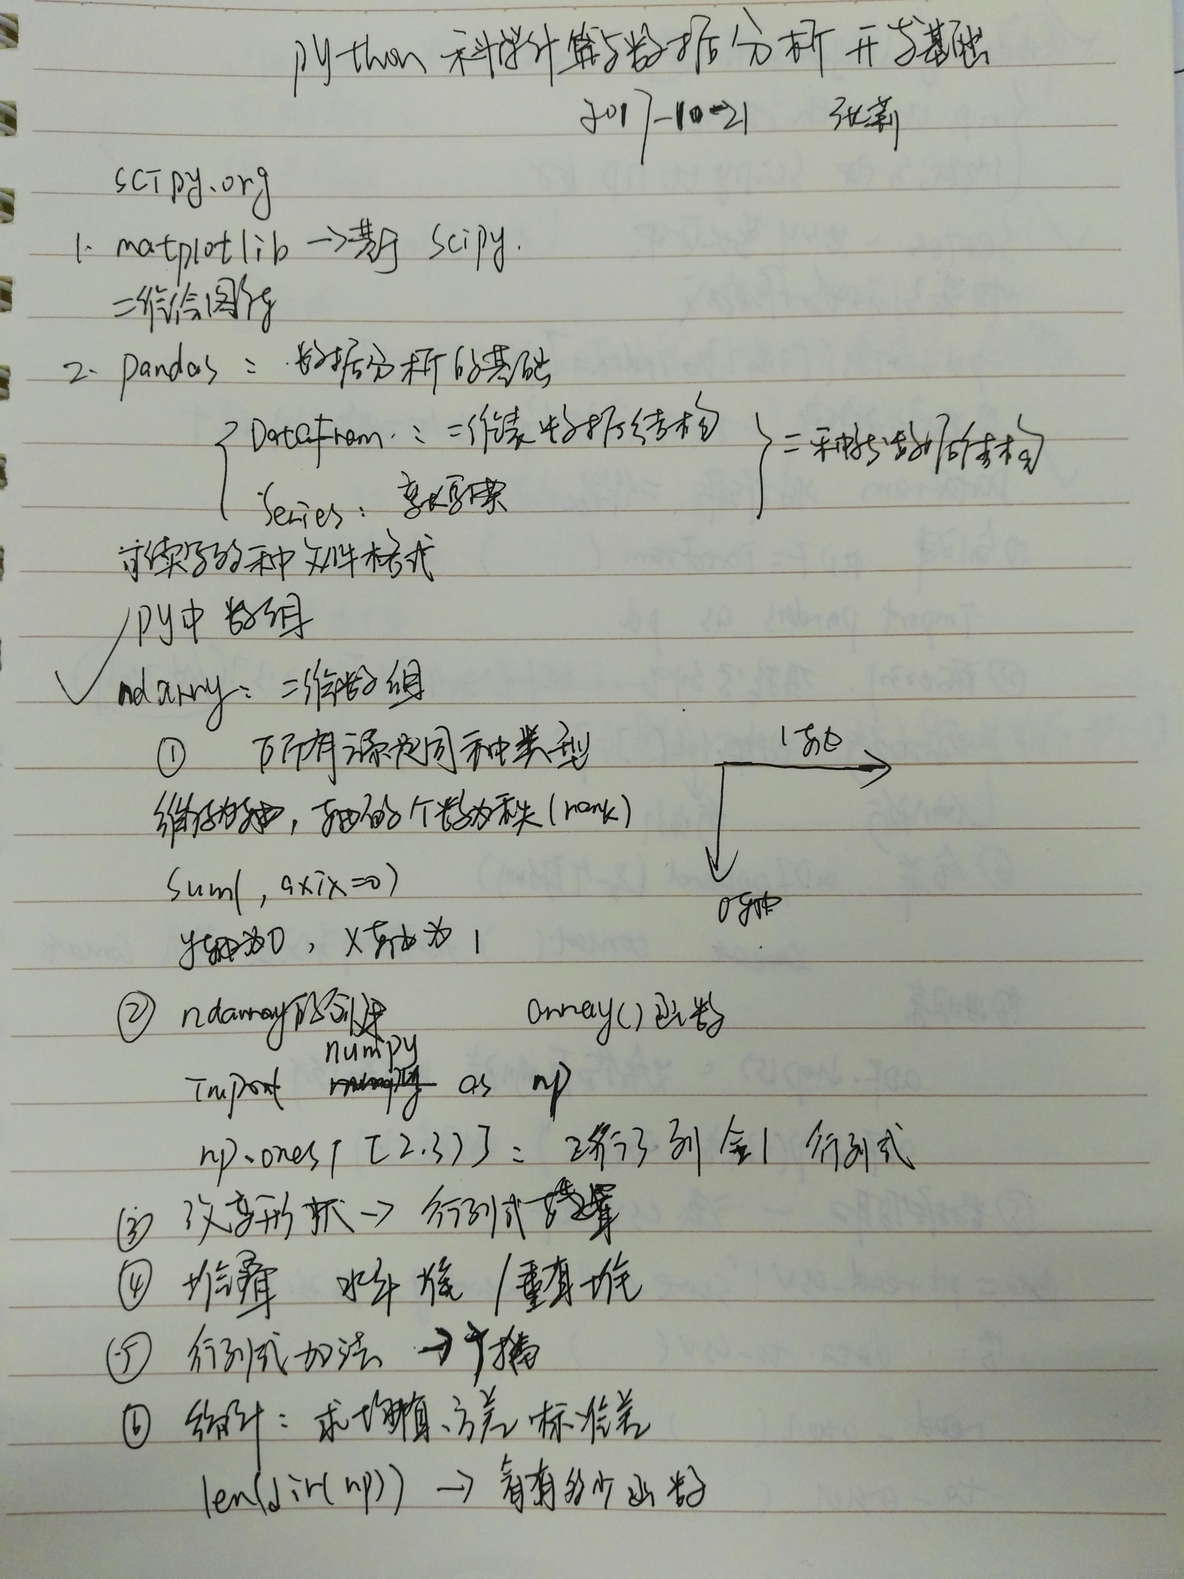 python 科学计算与数据分析开发基础
2017-10-21 张莉
scipy.org
1. matplotlib →基于 scipy.
二维绘图库
2. pandas : 数据分析的基础
DataFram : 二维表 数据结构
Series :
二种数据结构
可读写的种文件格式
py中 数组
ndarry: 二维数组
① 所有元素是同种类型
1轴
维称为轴, 轴的个数为秩(rank)
sum( , axix=0)
0轴
y轴为0, x轴为1
② ndarray的创建 array()函数
numpy
Import as np
np.ones( [2.3)] : 2行3列全1 行列式
③ 改变形状 → 行列式
④ 堆叠 水平堆 / 垂直堆
⑤ 行列式加法 → 广播
⑥ 统计: 求均值、方差、标准差
len(dir(np)) → 看有多少函数